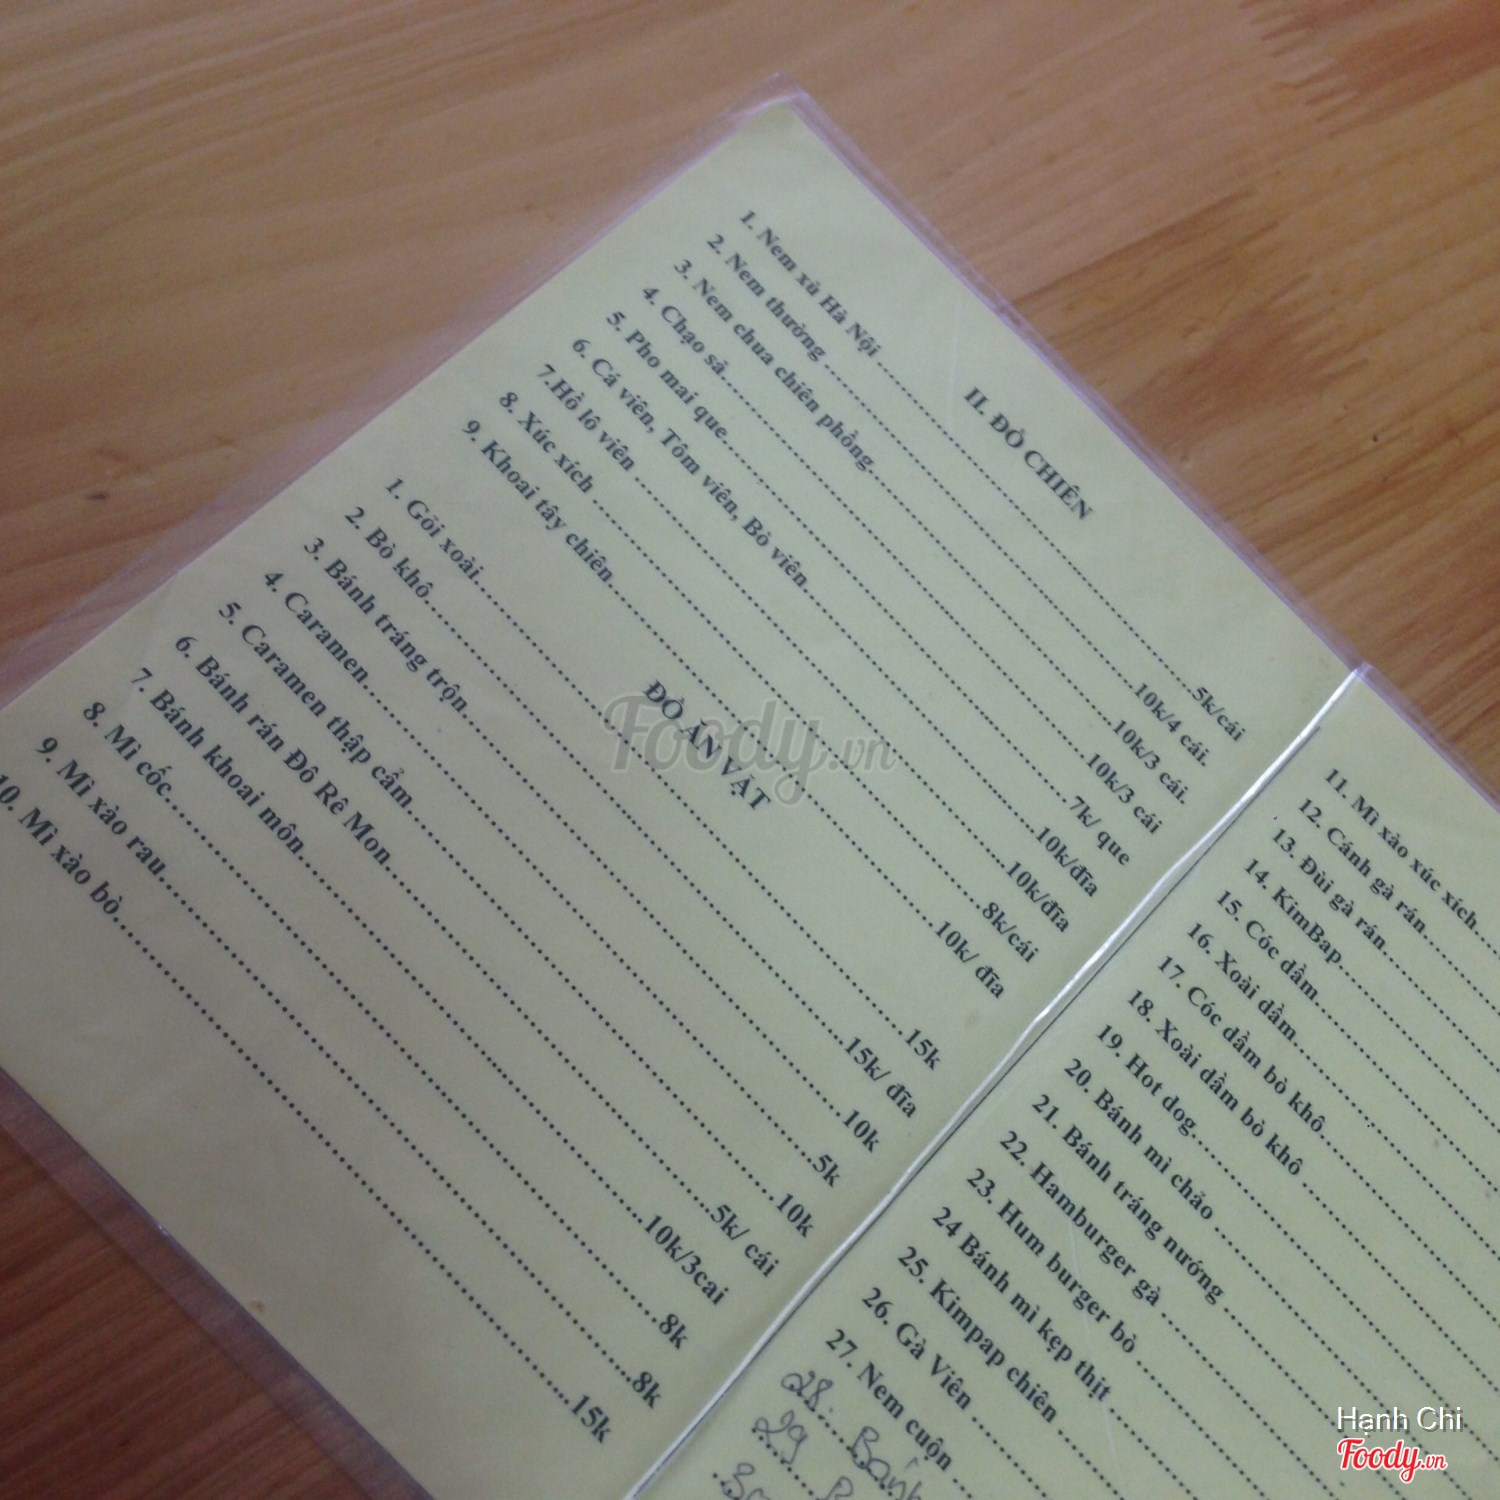 II. ĐỒ CHIÊN
1. Nem xù Hà Nội 5k/cái
2. Nem thường 10k/4 cái.
3. Nem chua chiên phồng 10k/3 cái.
4. Chạo sả 10k/3 cái
5. Pho mai que 7k/ que
6. Cá viên, Tôm viên, Bò viên 10k/đĩa
7.Hồ lô viên 10k/đĩa
8. Xúc xích 8k/cái
9. Khoai tây chiên 10k/ đĩa
ĐỒ ĂN VẶT
1. Gỏi xoài 15k
2. Bò khô 15k/ đĩa
3. Bánh tráng trộn 10k
4. Caramen 5k
5. Caramen thập cẩm 10k
6. Bánh rán Đô Rê Mon 5k/ cái
7. Bánh khoai môn 10k/3cai
8. Mì cốc 8k
9. Mì xào rau 8k
10. Mì xào bò 15k
11. Mì xào xúc xích
12. Cánh gà rán
13. Đùi gà rán
14. KimBap
15. Cóc dầm
16. Xoài dầm
17. Cóc dầm bò khô
18. Xoài dầm bò khô
19. Hot dog
20. Bánh mì chảo
21. Bánh tráng nướng
22. Hamburger gà
23. Hum burger bò
24 Bánh mì kẹp thịt
25. Kimpap chiên
26. Gà Viên
27. Nem cuộn
28. Bánh
29
Foody.vn
Hạnh Chi
Foody.vn